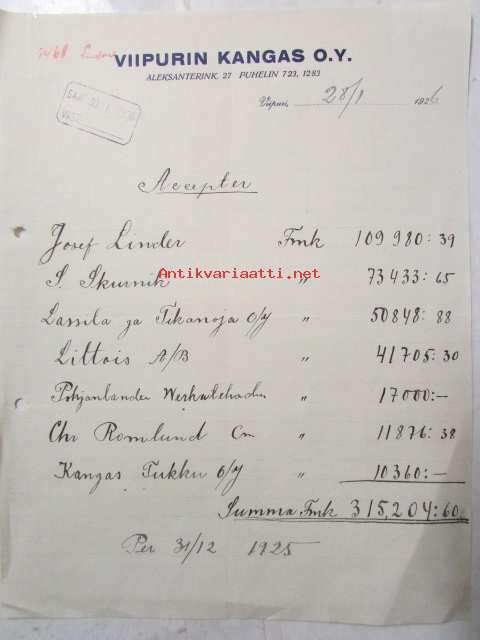 VIIPURIN KANGAS O.Y.
ALEKSANTERINK. 27 PUHELIN 723, 1283
Viipuri, 28/1 1926
Accepter
Josef Linder Fmk 109 980: 39
S. Skurnik " 73 433: 65
Antikvariaatti.net
Lassila ja Tikanoja O/Y " 50848: 88
Littois A/B " 41705: 30
Pohjanlanden " 17000:-
Chr Romlund Cm " 11876: 38
Kangas Tukku O/Y " 10360:-
Summa Fmk 315,204:60
Per 31/12 1925